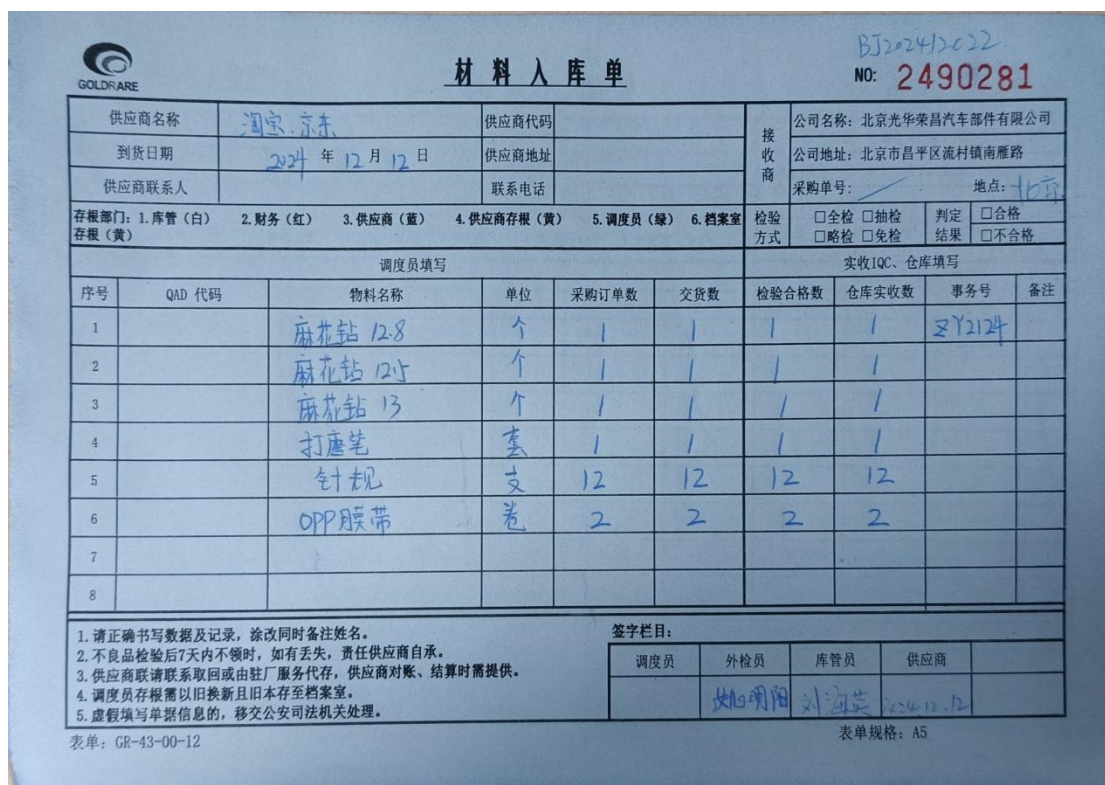 BJ202412C22
GOLDRARE
材料入库单
NO: 2490281
供应商名称 淘宝.京东 供应商代码 接收商 公司名称: 北京光华荣昌汽车部件有限公司
到货日期 2024 年 12 月 12 日 供应商地址 公司地址: 北京市昌平区流村镇南雁路
供应商联系人 联系电话 采购单号: 地点: 北京
存根部门: 1.库管(白) 2.财务(红) 3.供应商(蓝) 4.供应商存根(黄) 5.调度员(绿) 6.档案室
存根(黄)
检验方式 □全检 □抽检 判定结果 □合格
□略检 □免检 □不合格
调度员填写 实收IQC、仓库填写
序号 QAD 代码 物料名称 单位 采购订单数 交货数 检验合格数 仓库实收数 事务号 备注
1 麻花钻 12.8 个 1 1 1 1 ZY2124
2 麻花钻 12.5 个 1 1 1 1
3 麻花钻 13 个 1 1 1 1
4 打磨笔 套 1 1 1 1
5 针规 支 12 12 12 12
6 OPP胶带 卷 2 2 2 2
7
8
1.请正确书写数据及记录, 涂改同时备注姓名。
2.不良品检验后7天内不领时, 如有丢失, 责任供应商自承。
3.供应商联请联系取回或由驻厂服务代存, 供应商对账、结算时需提供。
4.调度员存根需以旧换新且旧本存至档案室。
5.虚假填写单据信息的, 移交公安司法机关处理。
签字栏目:
调度员 外检员 库管员 供应商
明阳 刘海英 2024.12.12
表单: GR-43-00-12
表单规格: A5